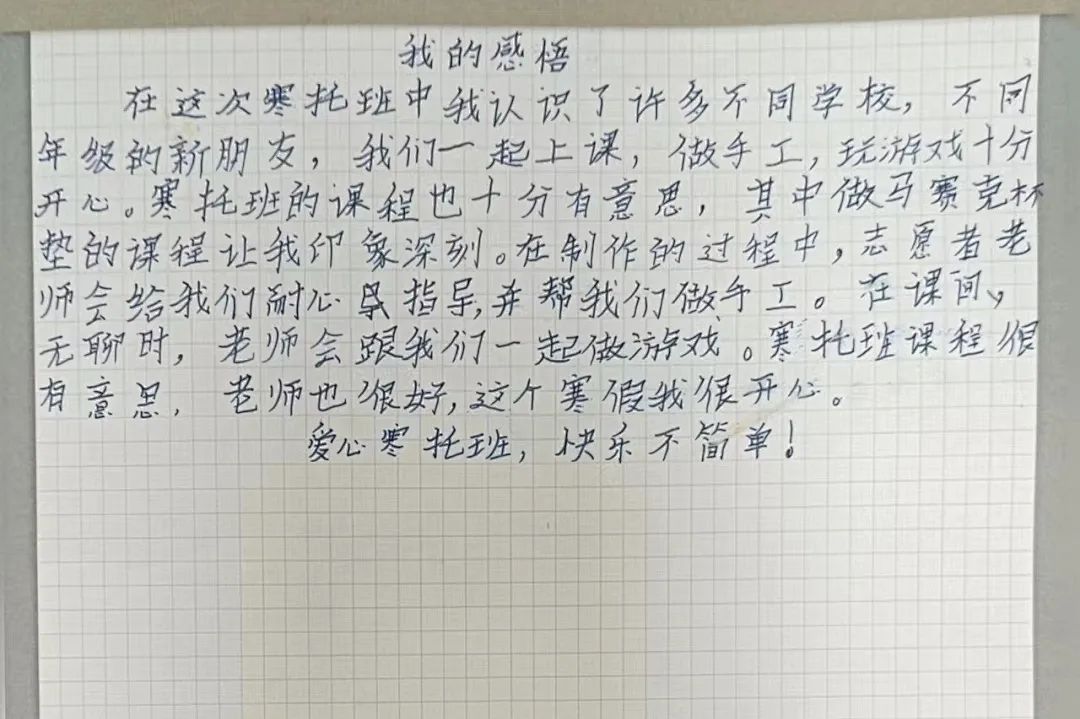 我的感悟
在这次寒托班中我认识了许多不同学校，不同
年级的新朋友，我们一起上课，做手工，玩游戏十分
开心。寒托班的课程也十分有意思，其中做马赛克杯
垫的课程让我印象深刻。在制作的过程中，志愿者老
师会给我们耐心指导，并帮我们做手工。在课间，
无聊时，老师会跟我们一起做游戏。寒托班课程很
有意思，老师也很好，这个寒假我很开心。
爱心寒托班，快乐不简单！